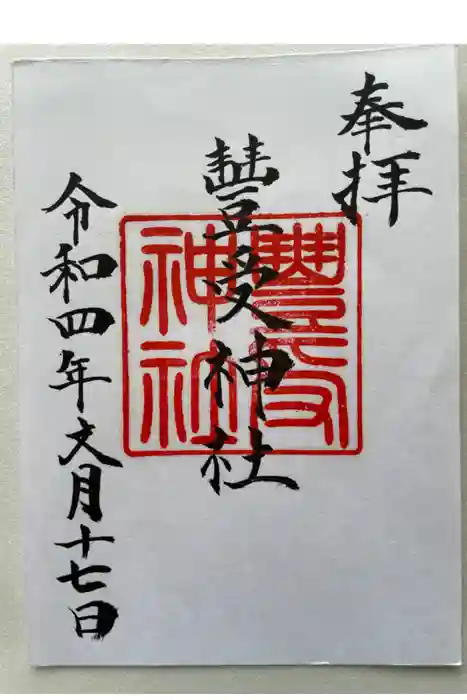 奉拝
豊受神社
豐受神社
令和四年文月十七日